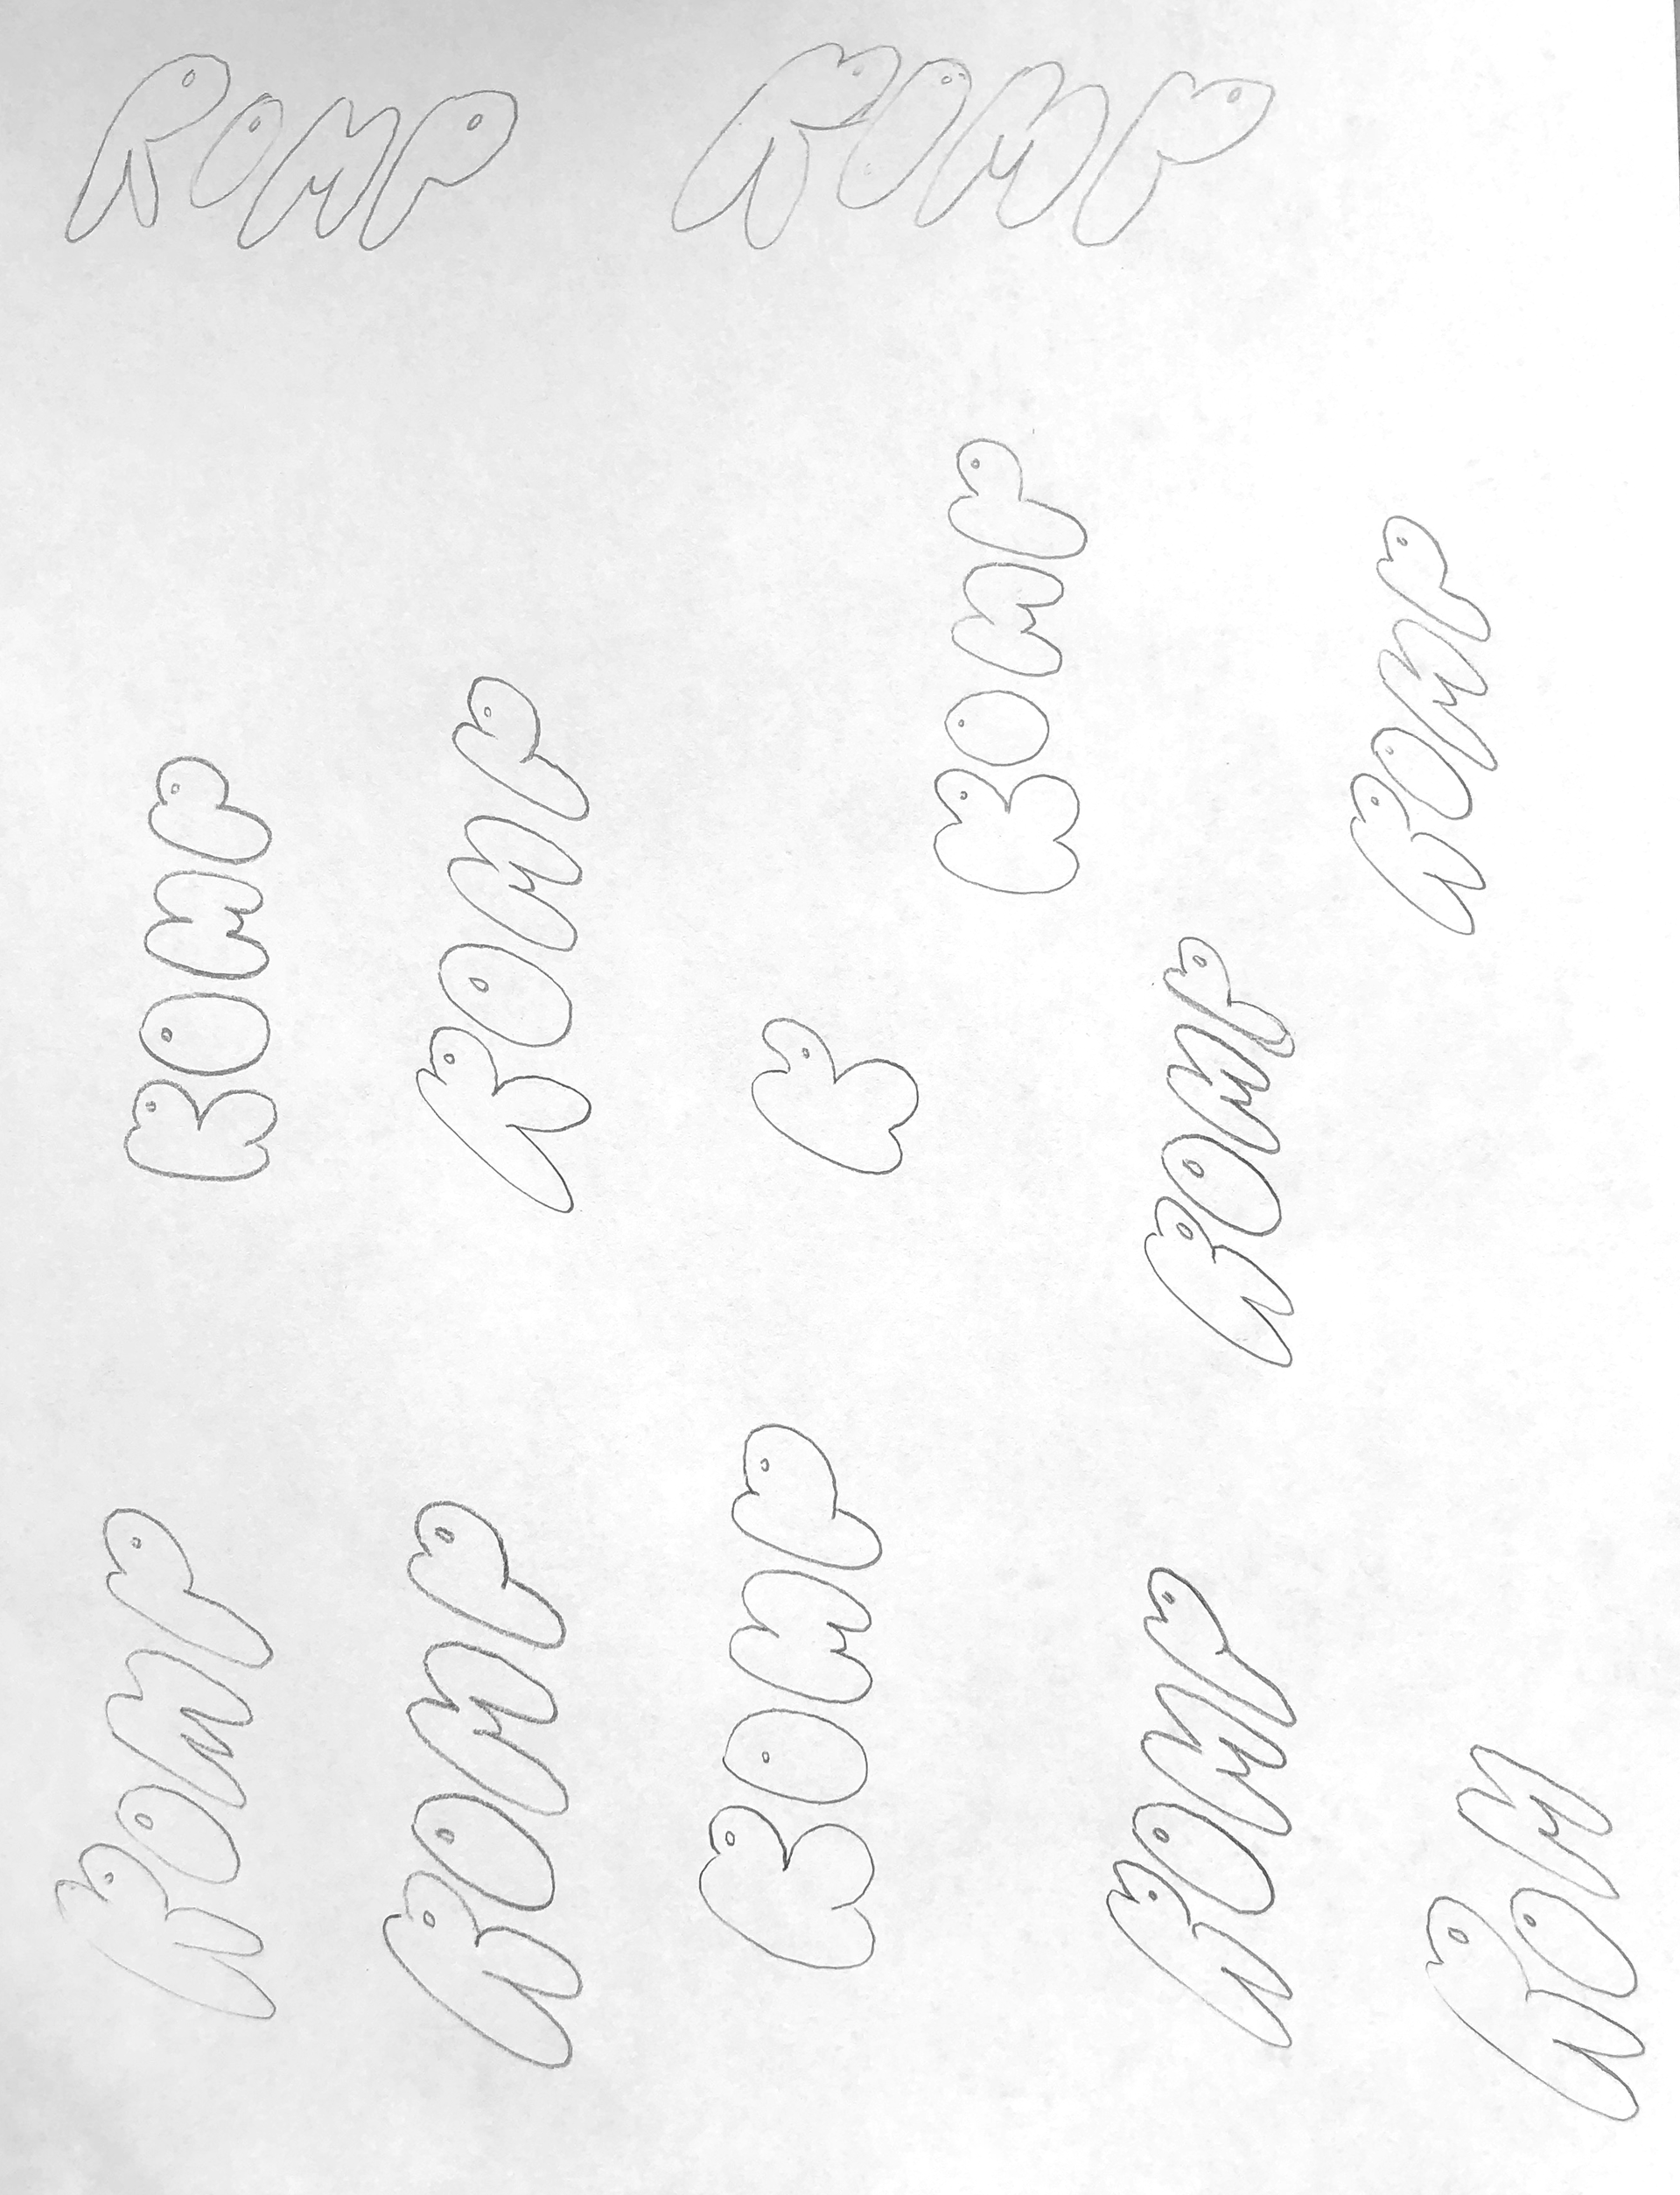 ROMP ROMP
ROMP
ROMP
ROMP
ROMP
R
ROMP
ROMP
ROMP
ROMP
ROMP
ROM